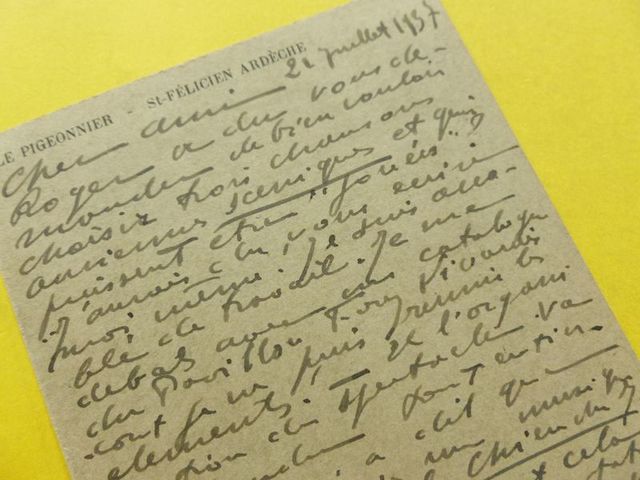 LE PIGEONNIER - ST-FÉLICIEN ARDÈCHE
21 juillet 1937
Cher ami
Roger a du vous de-
mander de bien vouloir
choisir trois chansons
anciennes sceniques et qui
puissent etre "jouées"
J'aurais du vous ecrire
moi meme. Je suis acca-
blé de travail. Je me
debats avec un catalogue
du Pavillon Forez Vivarais
dont je ne puis reunir les
elements. Et l'organi
sation du spectacle va
dont entie-
a dit que
une musique
cela